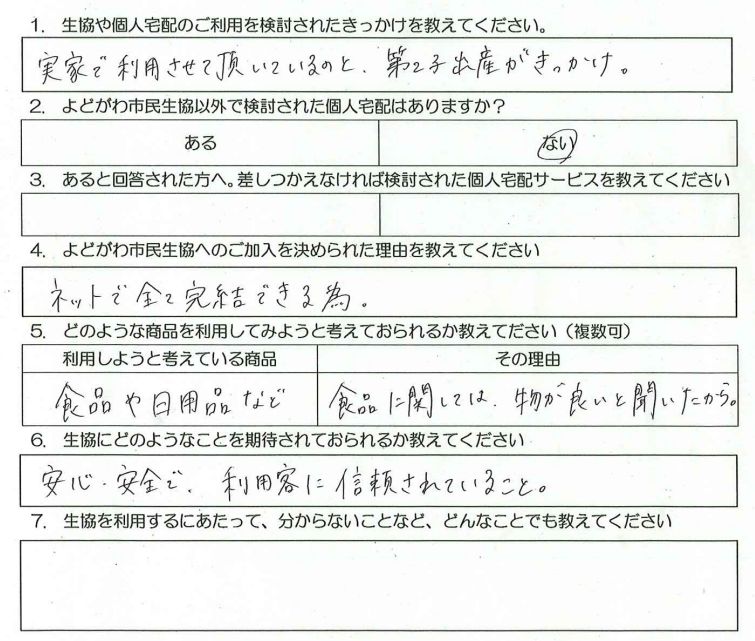 1. 生協や個人宅配のご利用を検討されたきっかけを教えてください。
実家で利用させて頂いているのと、第2子出産がきっかけ。
2. よどがわ市民生協以外で検討された個人宅配はありますか?
ある ない
3. あると回答された方へ。差しつかえなければ検討された個人宅配サービスを教えてください
4. よどがわ市民生協へのご加入を決められた理由を教えてください
ネットで全て完結できる為。
5. どのような商品を利用してみようと考えておられるか教えてださい(複数可)
利用しようと考えている商品 その理由
食品や日用品など 食品に関しては、物が良いと聞いたから。
6. 生協にどのようなことを期待されておられるか教えてください
安心・安全で、利用客に信頼されていること。
7. 生協を利用するにあたって、分からないことなど、どんなことでも教えてください